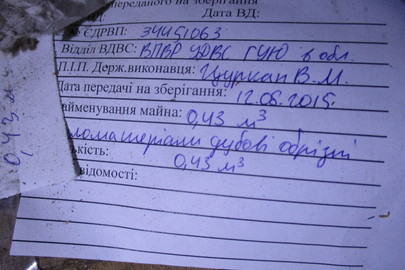 переданого на зберігання
ВД: Дата ВД:
ЄДРВП: 34451063
Відділ ВДВС: ВПВР УДВС ГУЮ в обл.
П.І.П. Держ.виконавця: Цуркан В.М.
Дата передачі на зберігання: 12.08.2015
айменування майна: 0,43 м³
ломатеріали дубові обрізні
ькість: 0,43 м³
відомості:
0,43 м